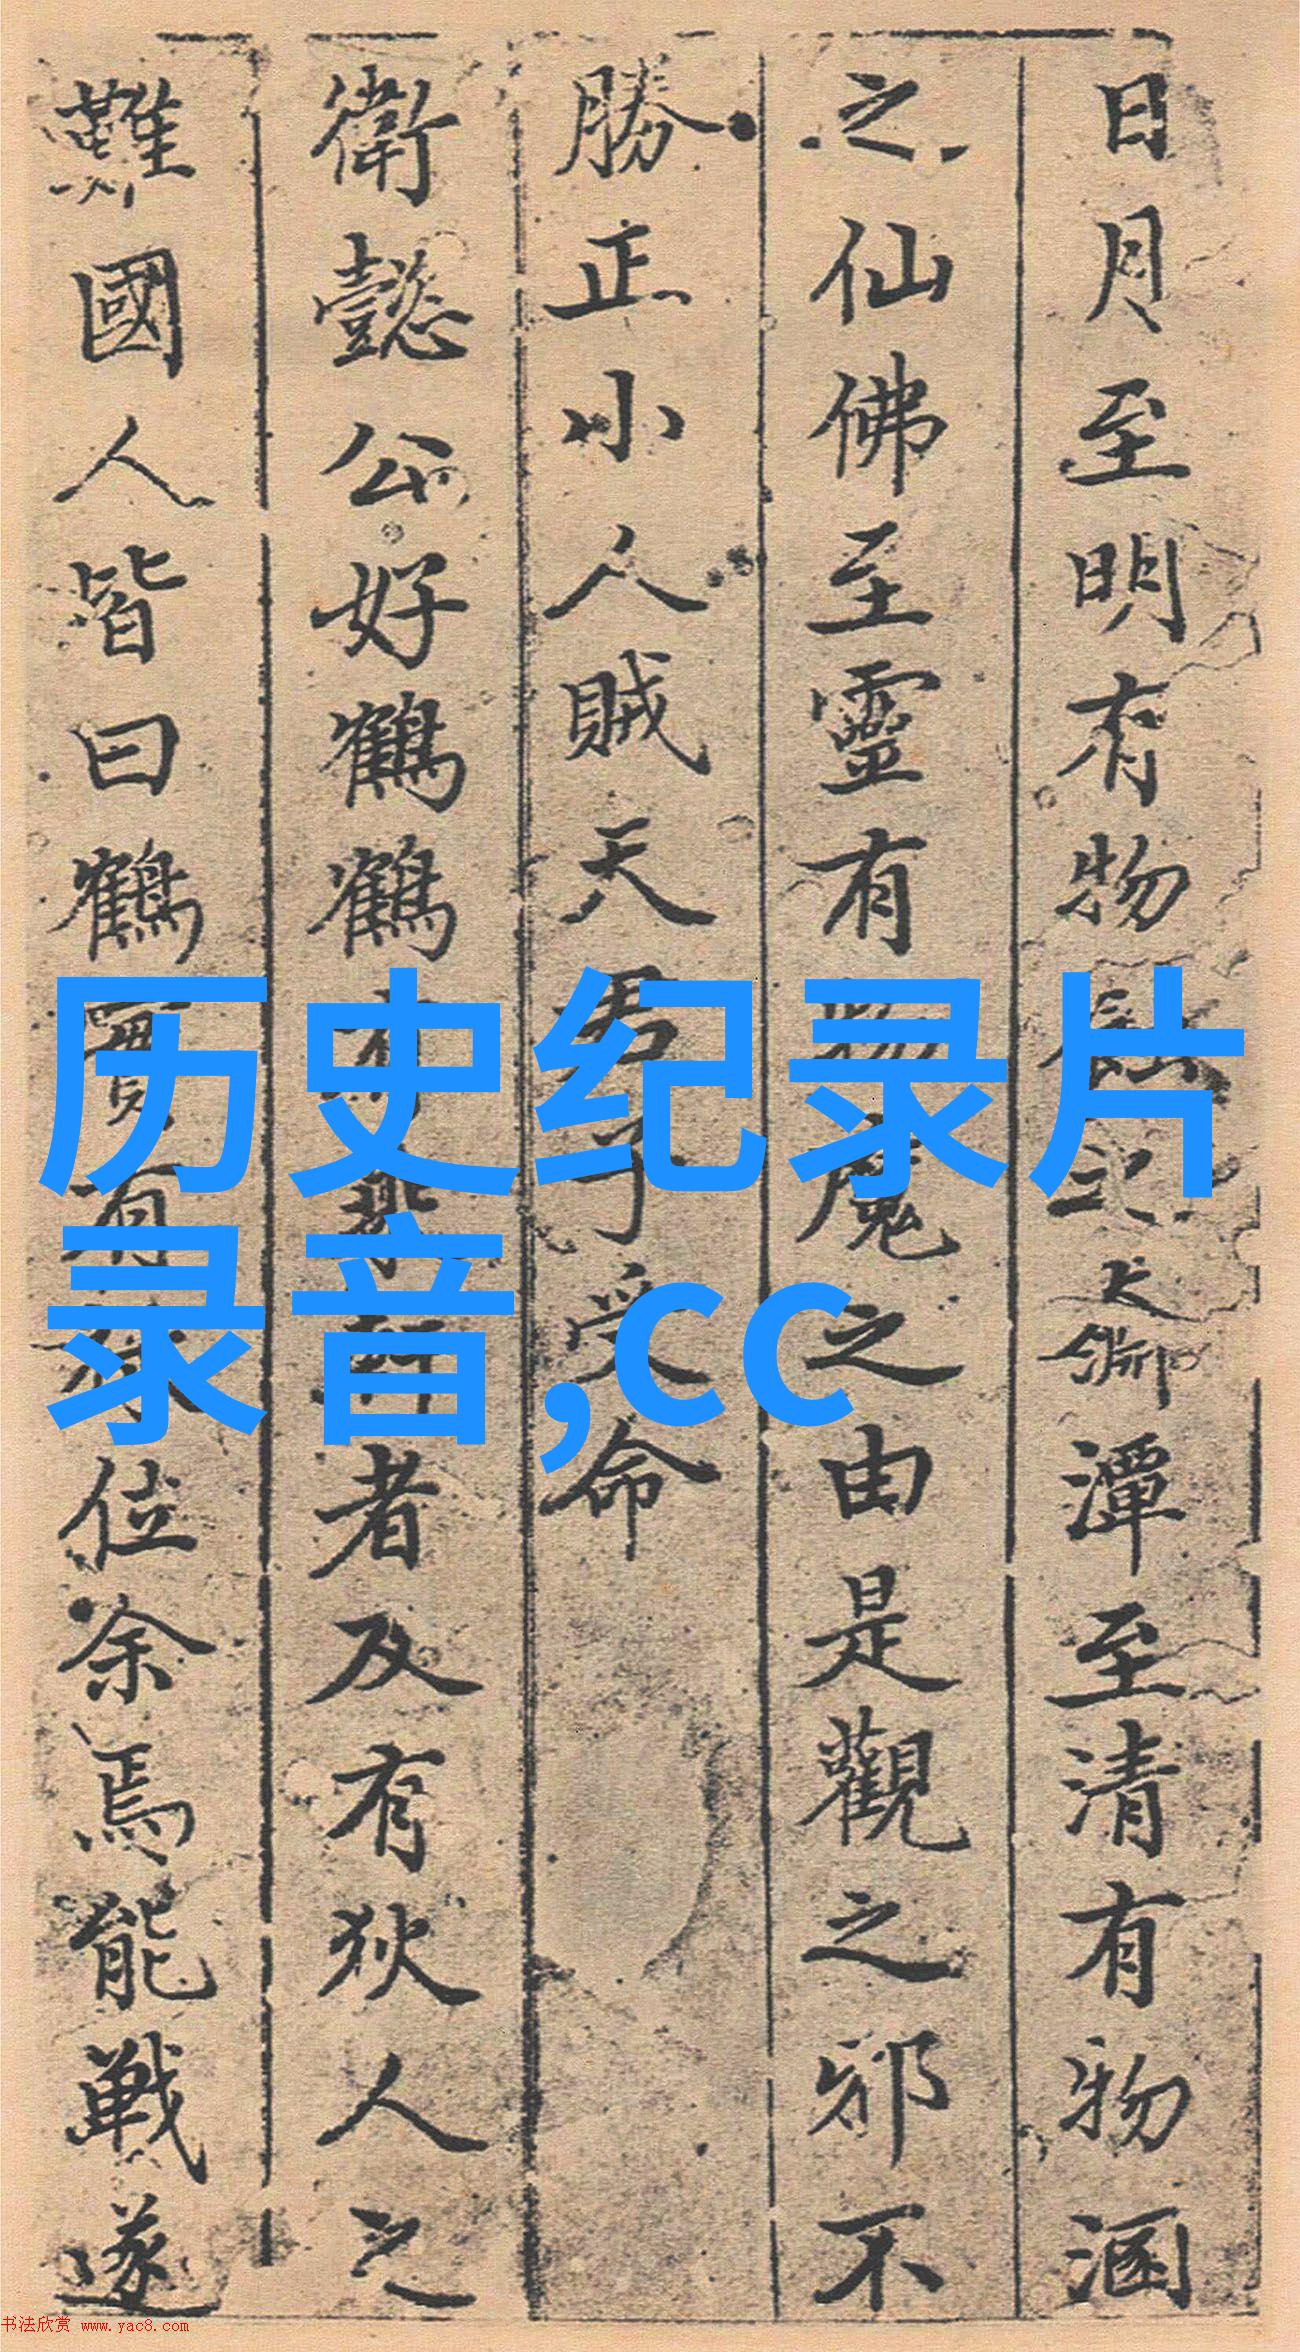 日月至明有物之潭至清有物涵
之仙佛至靈有物魔之由是觀之邪不
勝正小人賊天君子受命
衛懿公好鶴鶴有乘軒者及有狄人之
難國人皆曰鶴實有禄位余焉能戰遂
历史纪录片
录音,cc
书法欣赏 www.yac8.com